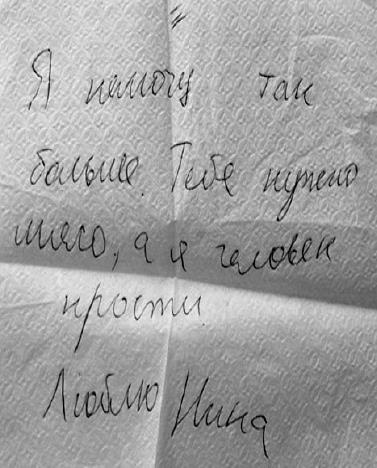 Я немогу так
больше. Тебе нужно
мясо, а я человек
прости
Люблю Нина